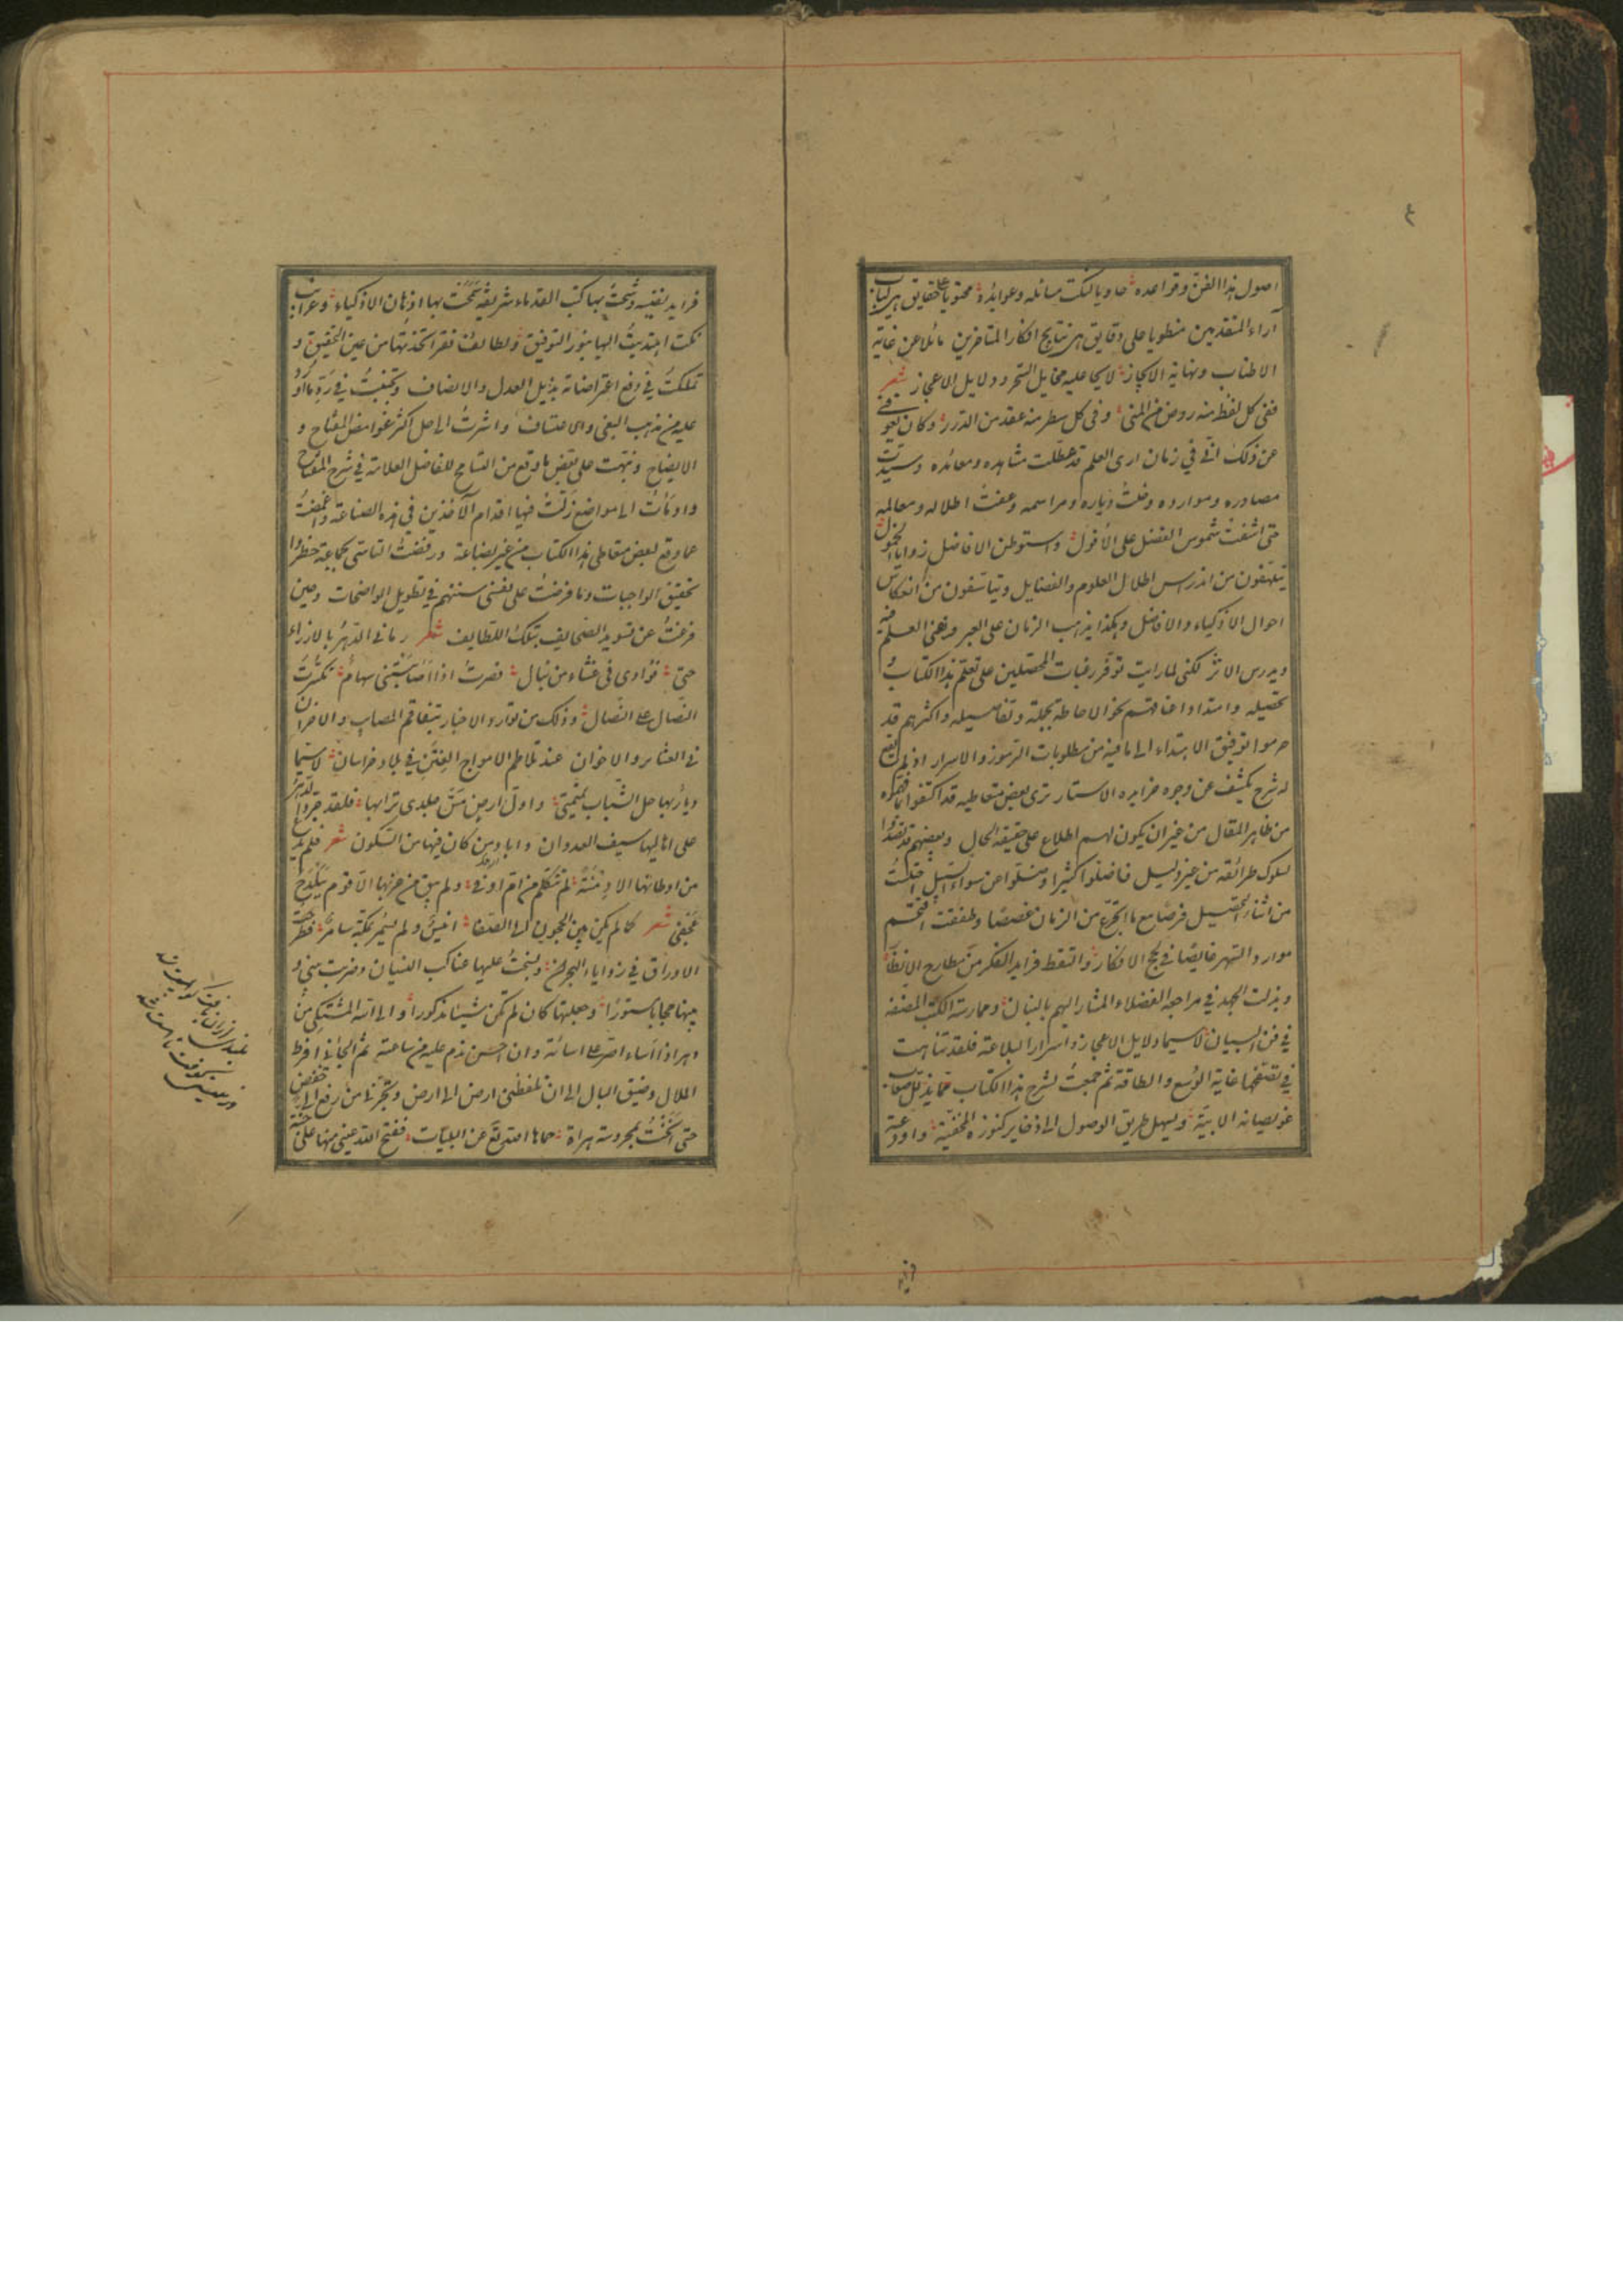 ٤
اصول هذا الفن وقواعده حاويا لنكت مسائله وعوايده محتويا على حقايق هي لباب
آراء المتقدمين منطويا على دقايق هي نتايج افكار المتاخرين مائلا عن غاية
الاطناب ونهاية الايجاز لايحا عليه مخايل السحر ودلايل الاعجاز شعر
ففي كل لفظ منه روض من المنى وفي كل سطر منه عقد من الدرر وكان يعوقني
عن ذلك اني في زمان ارى العلم قد عطلت مشاهده ومعائده وسدت
مصادره وموارده وخلت دياره ومراسمه وعفت اطلاله ومعالمه
حتى اشفت شموس الفضل على الافول واستوطن الافاضل زوايا الخمول
يتلهفون من اندراس اطلال العلوم والفضايل ويتاسفون من انعكاس
احوال الاذكياء والافاضل وهكذا يذهب الزمان على العبر ويفنى العلم فيه
ويدرس الاثر لكني لما رايت توفر رغبات المحصلين على تعلم هذا الكتاب و
تحصيله وامتداد اعناقهم نحو الاحاطة بجملة وتفاصيله واكثرهم قد
حرموا توفيق الاهتداء الى ما فيه من مطلوبات الرموز والاسرار اذ لم يقع
له شرح يكشف عن وجوه خرايده الاستار ترى بعض متعاطيه قد اكتفوا بما فهموه
من ظاهر المقال من غير ان يكون لهم اطلاع على حقيقة الحال وبعضهم قد تصدوا
لسلوك طرائقه من غير دليل فاضلوا كثيرا وضلوا عن سواء السبيل اختلست
من اثناء التحصيل فرصا مع ما اتجرع من الزمان غصصا وطفقت اقتحم
موارد السهر غايصا في لجج الافكار والتقط فرايد الفكر من مطارح الانظار
وبذلت الجهد في مراجعة الفضلاء المشار اليهم بالبنان وممارسة الكتب المصنفة
في فن البيان لا سيما دلايل الاعجاز واسرار البلاغة فلقد تناهيت
في تصفحها غاية الوسع والطاقة ثم جمعت لشرح هذا الكتاب ما يذلل صعاب
عويصاته الابية ويسهل طريق الوصول الى ذخاير كنوزه المخفية واودعته
فرايد
فرايد نفيسة وشحت بها كتب القدماء شريفة سمحت بها اذهان الاذكياء وغرايب
نكت اهتديت اليها بنور التوفيق ولطايف فقر اتخذتها من عين التحقيق و
تمسكت في دفع اعتراضاته بذيل العدل والانصاف وتجنبت في رد ما اورد
عليه من مذهب البغي والاعتساف واشرت الى حل اكثر غوامض المفتاح و
الايضاح ونبهت على بعض ما وقع من التسامح للفاضل العلامة في شرح المفتاح
واومأت الى مواضع زلت فيها اقدام الآخذين في هذه الصناعة واغمضت
عما وقع لبعض متعاطي هذا الكتاب من غير بضاعة ورفضت التاسي بجماعة حظروا
تحقيق الواجبات وما فرضت على نفسي سنتهم في تطويل الواضحات وحين
فرغت عن تسويد الصحايف بتلك اللطايف شعر رماني الدهر بالارزاء
حتى فؤادي في غشاء من نبال فصرت اذا اصابتني سهام تكسرت
النصال على النصال وذلك من توارد الاخبار بتفاقم المصايب والاحزان
في العشاير والاخوان عند تلاطم الامواج الفتن في بلاد خراسان لا سيما
ديار بها حل الشباب تميمتي واول ارض مس جلدي ترابها فلقد جرد الدهر
على اهاليها سيف العدوان واباد من كان فيها من السكون شعر فلم يدع
من اوطانها الا دمنة لم تكلم من ام اوفى ولم يبق من حزبها الا قوم ببلدح
عجفى شعر كان لم يكن بين الحجون الى الصفا انيس ولم يسمر بمكة سامر فطرحت
الاوراق في زوايا الهجران ونسجت عليها عناكب النسيان وضربت بيني و
بينها حجابا مستورا وجعلتها كان لم تكن شيئا مذكورا والى الله المشتكى من
دهر اذا اساء اصر على اسائة وان احسن ندم عليه من ساعته ثم الجأني افراط
الملال وضيق البال الى ان تلفظني ارض الى ارض وتجرني من رفع الى خفض
حتى انخت بمحروسة هراة حماها الله تعالى عن البليات ففتح الله عيني منها على جنة